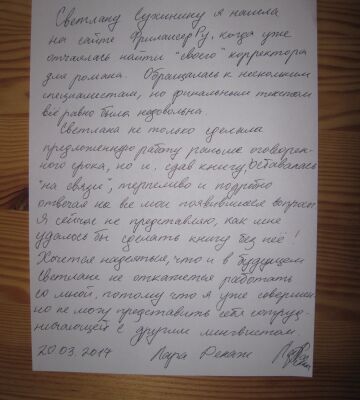 Светлану Сухинину я нашла
на сайте Фрилансер Ру, когда уже
отчаялась найти "своего" корректора
для романа. Обращалась к нескольким
специалистам, но финальным текстом
всё равно была недовольна.
Светлана не только сделала
предложенную работу раньше оговорен-
ного срока, но и, сдав книгу, оставалась
"на связи", терпеливо и подробно
отвечая на все мои появившиеся вопросы.
Я сейчас не представляю, как мне
удалось бы сделать книгу без неё!
Хочется надеяться, что и в будущем
Светлана не откажется работать
со мной, потому что я уже совершен-
но не могу представить себя сотруд-
ничающей с другим лингвистом.
20.03.2014 Лара